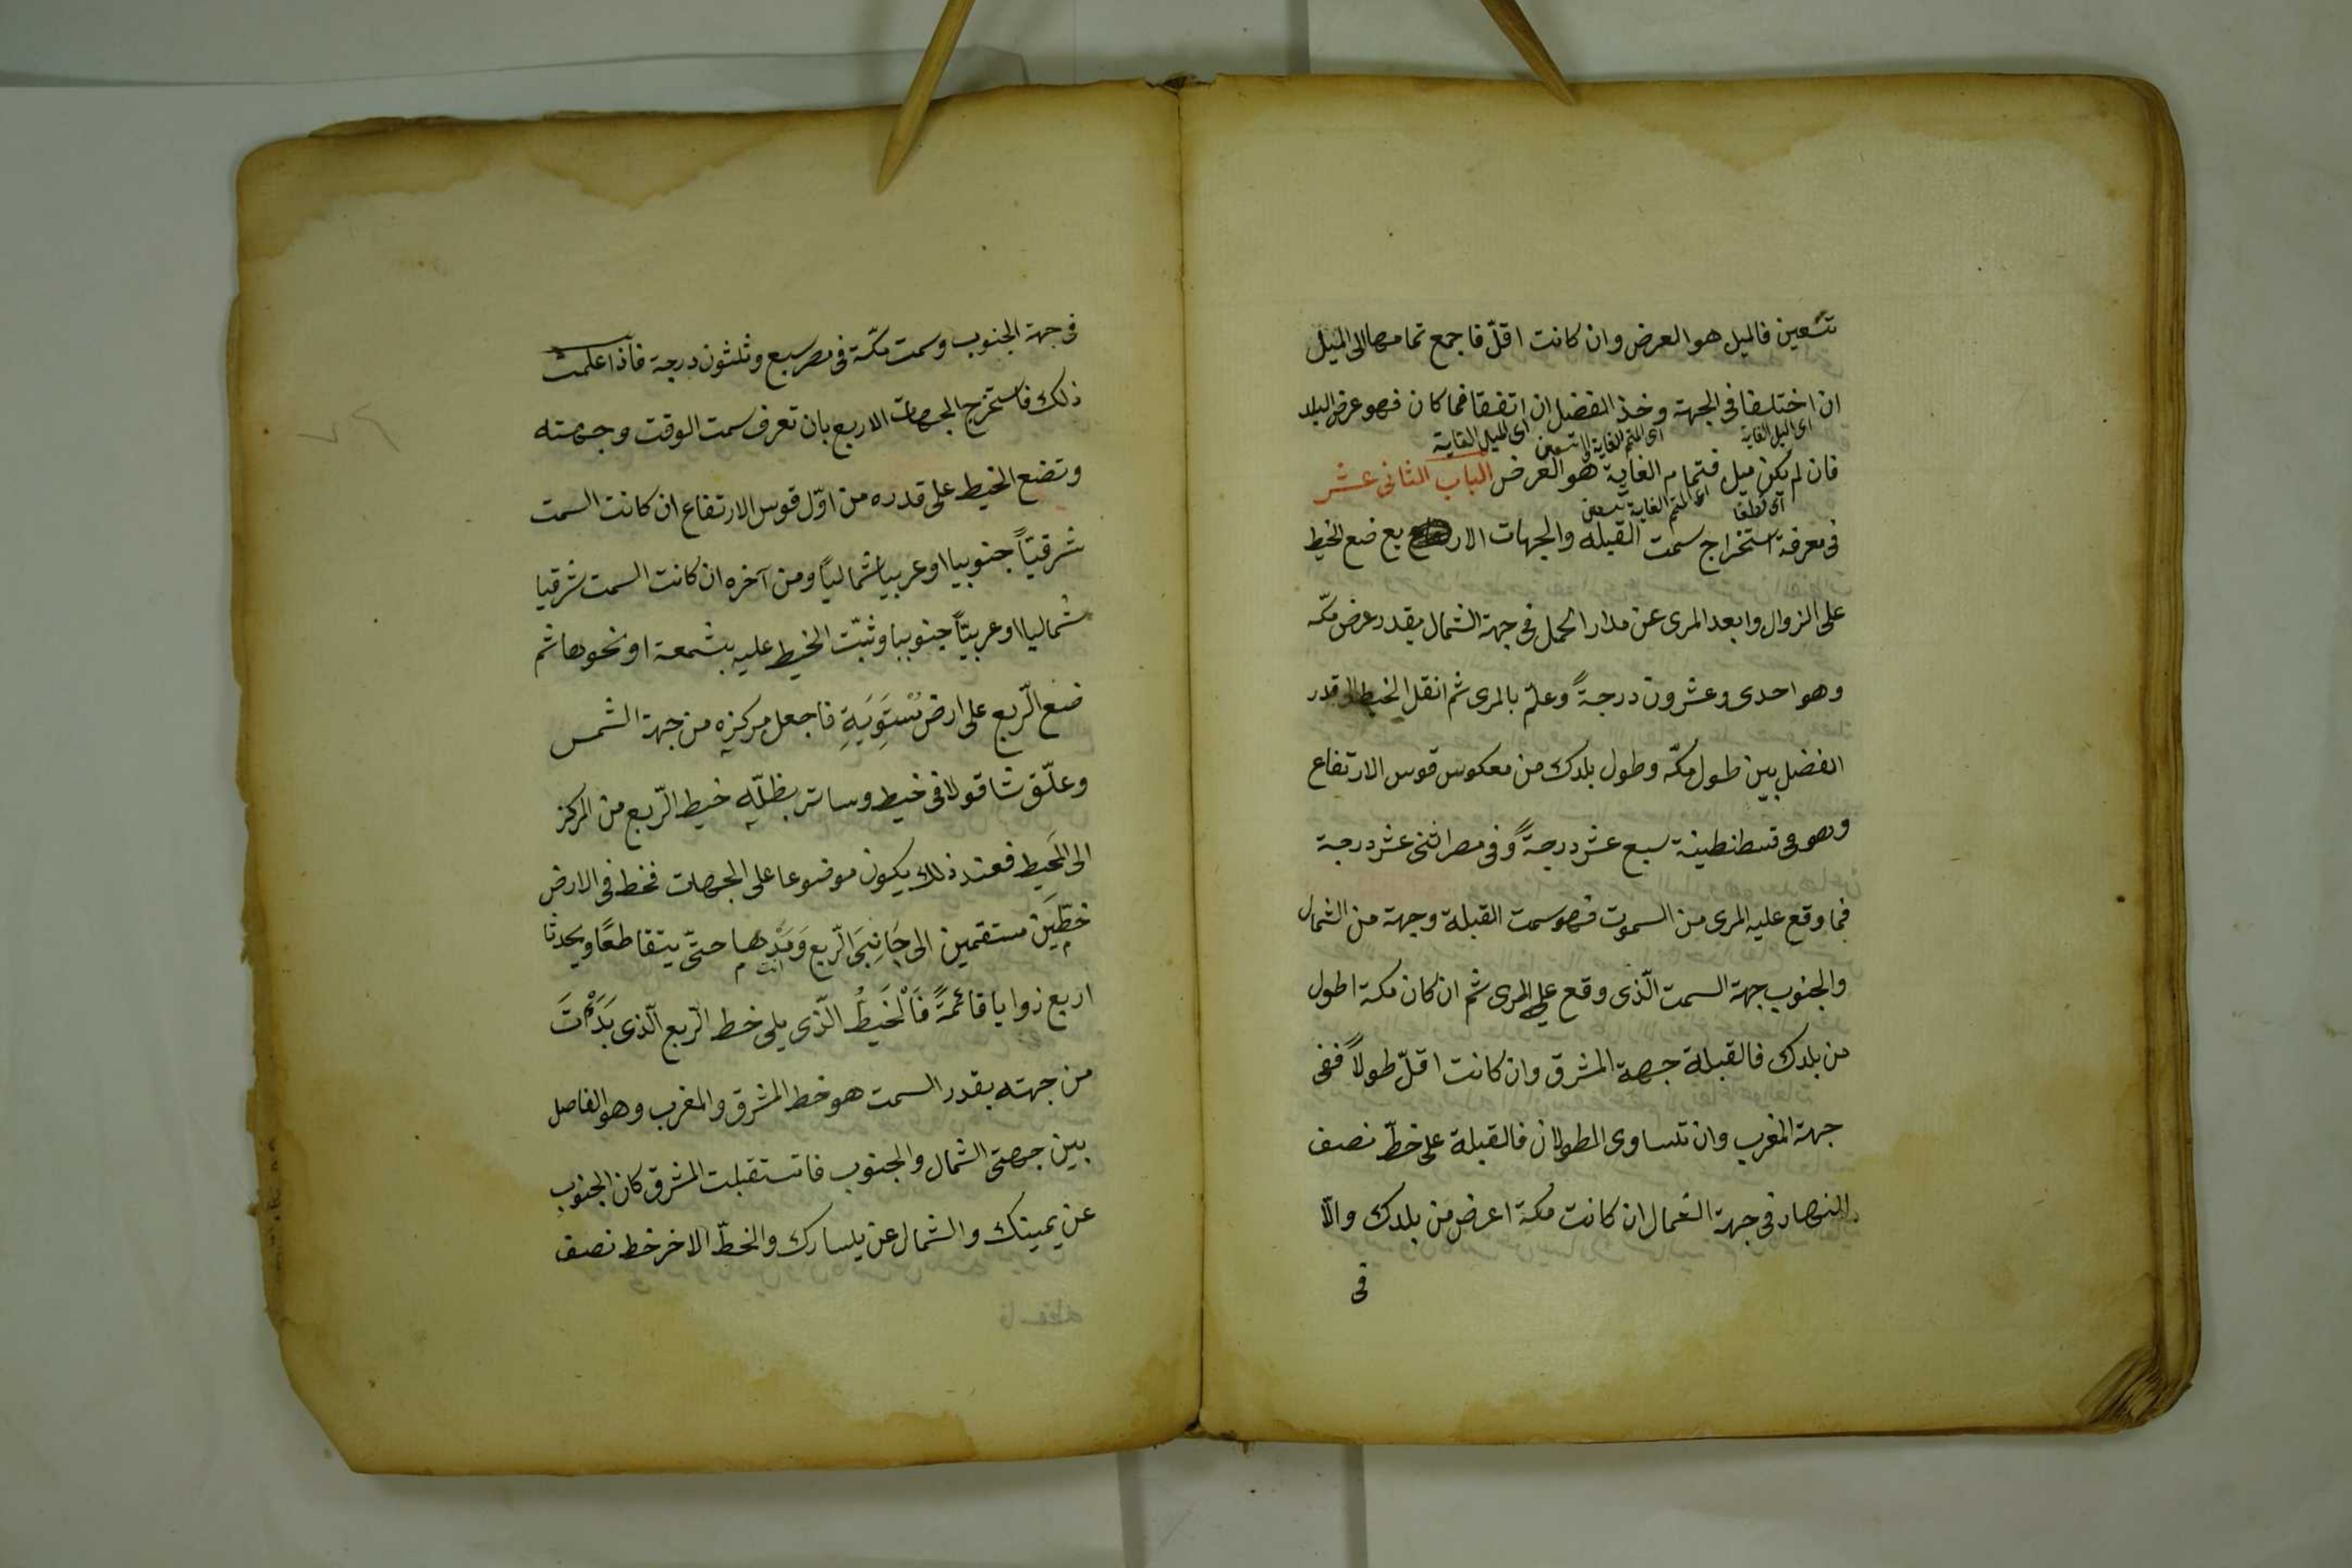 تسعين فالميل هو العرض وان كانت اقلّ فاجمع تمامها الى الميل
ان اختلفا فى الجهة وخذ الفضل ان اتفقا فما كان فهو عرض البلد
اى الميل الغاية
اى المتمم الغاية الى تسعين
اى الميل الغاية
فان لم يكن ميل فتمام الغاية هو العرض الباب الثانى عشر
اى المتمم الغاية تسعين
فى معرفة استخراج سمت القبله والجهات الار بع ضع الخيط
على الزوال وابعد المرى عن مدار الحمل فى جهة الشمال بقدر عرض مكّه
وهو احدى وعشرون درجةً وعلّم بالمرى ثم انقل الخيط الا قدر
الفضل بين طول مكّه وطول بلدك من معكوس قوس الارتفاع
وهو فى قسطنطينة سبع عشر درجةً وفى مصر اثنى عشر درجة
فما وقع عليه المرى من السموت فهو سمت القبلة وجهة من الشمال
والجنوب جهة السمت الّذى وقع على المرى ثم ان كان مكة اطول
من بلدك فالقبلة جهة المشرق وان كانت اقلّ طولاً ففى
جهة المغرب وان تساوى الطولان فالقبلة على خطّ نصف
النهار فى جهة الشمال ان كانت مكة اعرض من بلدك والّا
فى
فى جهة الجنوب وسمت مكّة فى مصر سبع وثلثون درجة فاذا علمت
ذلك فاستخرج الجهات الاربع بان تعرف سمت الوقت وجهته
وتضع الخيط على قدره من اوّل قوس الارتفاع ان كانت السمت
شرقيّاً جنوبيا او غربيا شمالياً ومن آخره ان كانت السمت شرقيا
شماليا او غربيّاً جنوبيا وثبّت الخيط عليه بشمعة او نحوها ثم
ضع الرّبع على ارض مُسْتَوِيَةٍ فاجعل مركزه من جهة الشمس
وعلّق شاقولا فى خيط وساتر بظلّه خيط الرّبع من المركز
الى المحيط فعند ذلك يكون موضوعا على الجهات فخط فى الارض
خطّين مستقمين الى جَانِبَى الرّبع وَمَدْهما حتّى يتقاطعًا ويحدثا
انت
اربع زوايا قائمةً فَالْخَيطُ الّذى يلى خط الرّبع الّذى بَدَأْتَ
من جهته بقدر السمت هو خط المشرق والمغرب وهو الفاصل
بين جهتى الشمال والجنوب فاستقبلت المشرق كان الجنوب
عن يمينك والشمال عن يسارك والخطّ الاخر خط نصف